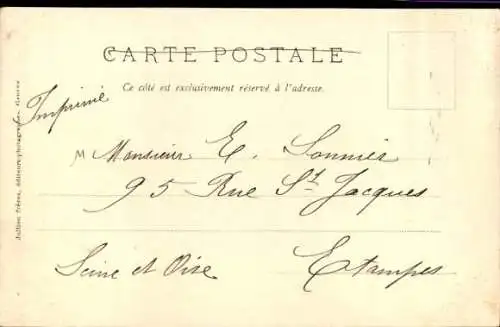 CARTE POSTALE
Ce côté est exclusivement réservé à l'adresse.
Imprimé
M Monsieur E. Sonnier
95 Rue St Jacques
Etampes
Seine et Oise
Jullien frères, éditeurs-photographes, Genève